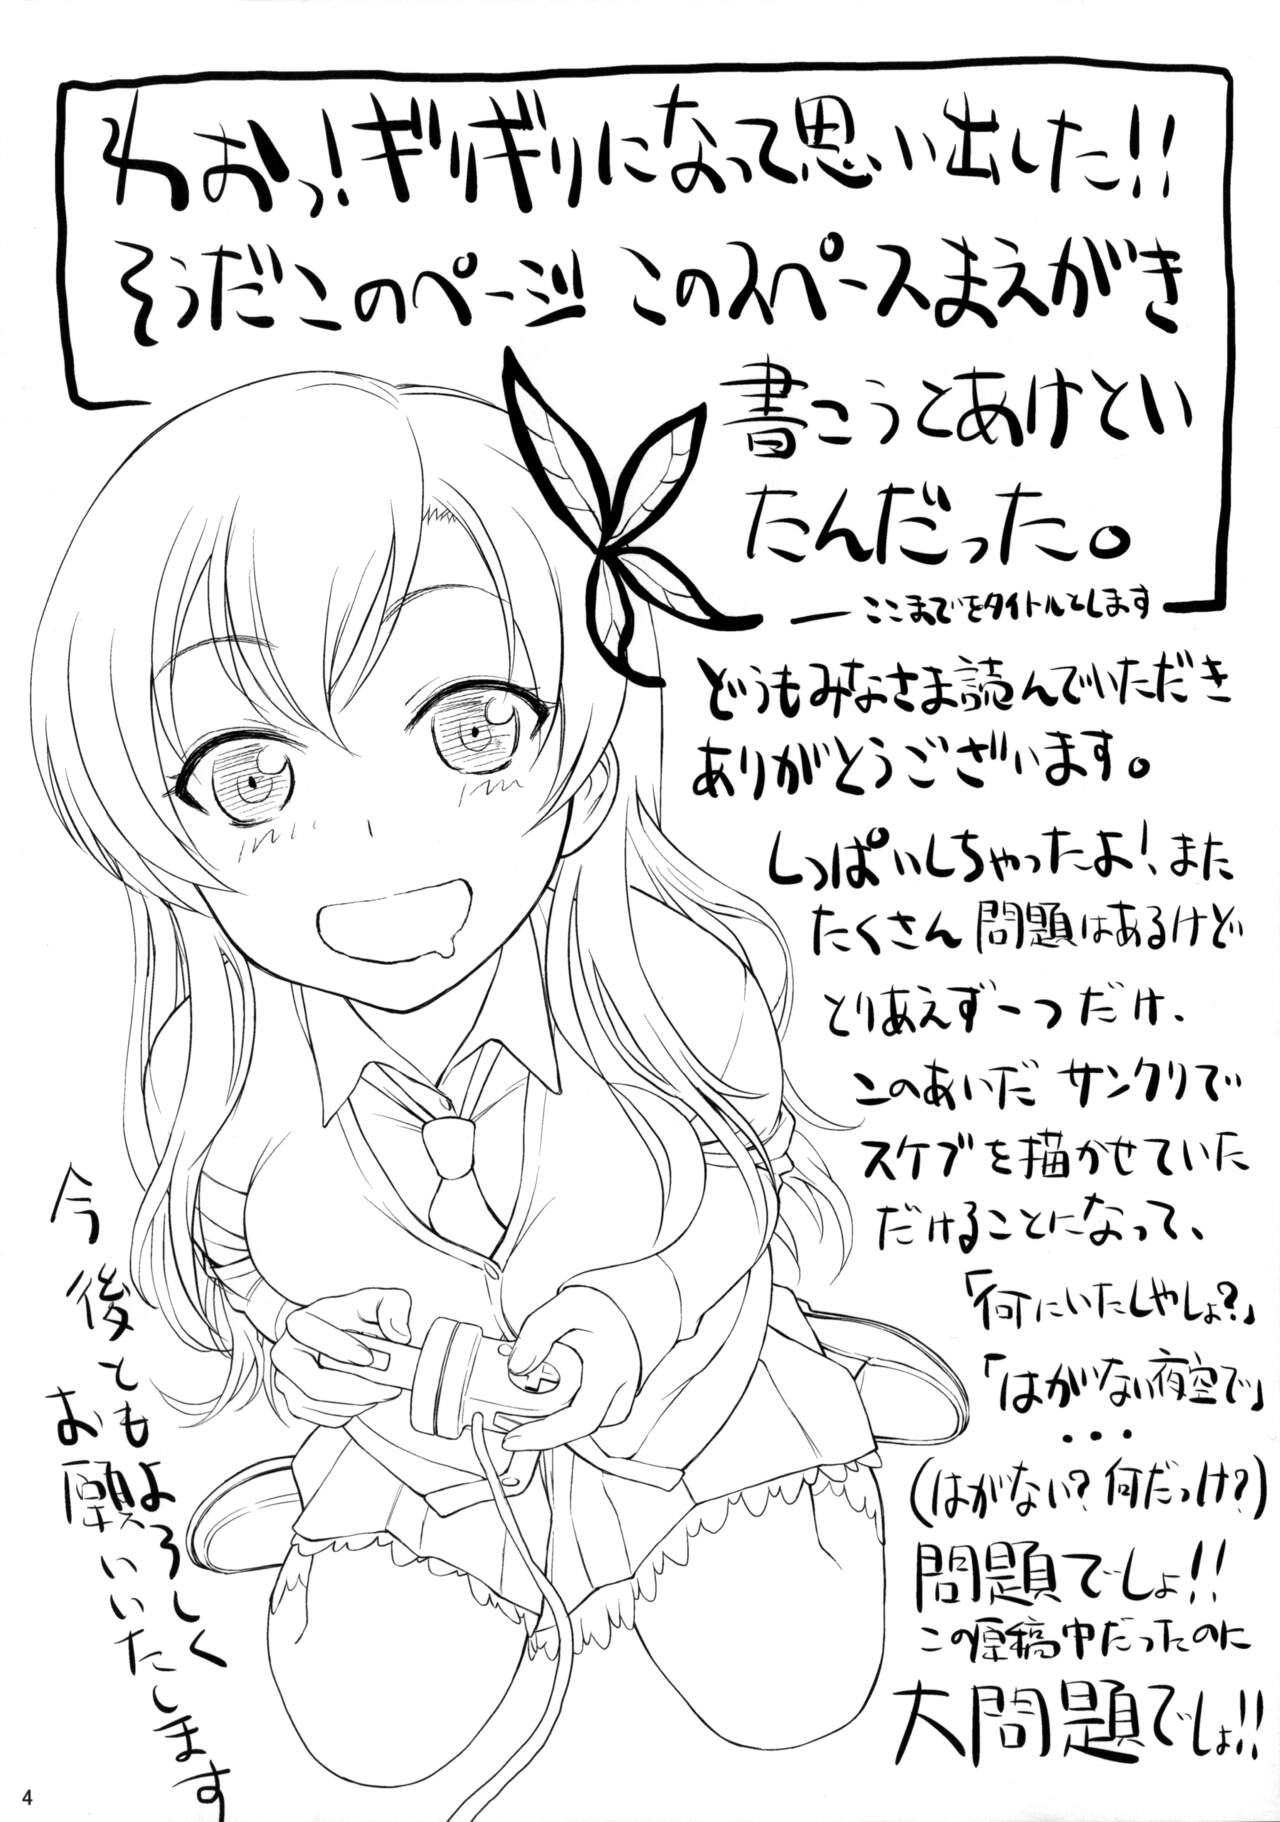 わおっ!ギリギリになって思い出した!!
そうだこのページ このスペースまえがき
書こうとあけとい
たんだった。
ここまでをタイトルとします
どうもみなさま読んでいただき
ありがとうございます。
しっぱいしちゃったよ!また
たくさん問題はあるけど
とりあえず一つだけ、
このあいだ サンクリで
スケブを描かせていた
だけることになって、
「何にいたしやしょ?」
「はがない夜空で」
・・・
(はがない?何だっけ?)
問題でしょ!!
この原稿中だったのに
大問題でしょ!!
今後ともよろしく
お願いいたします
4